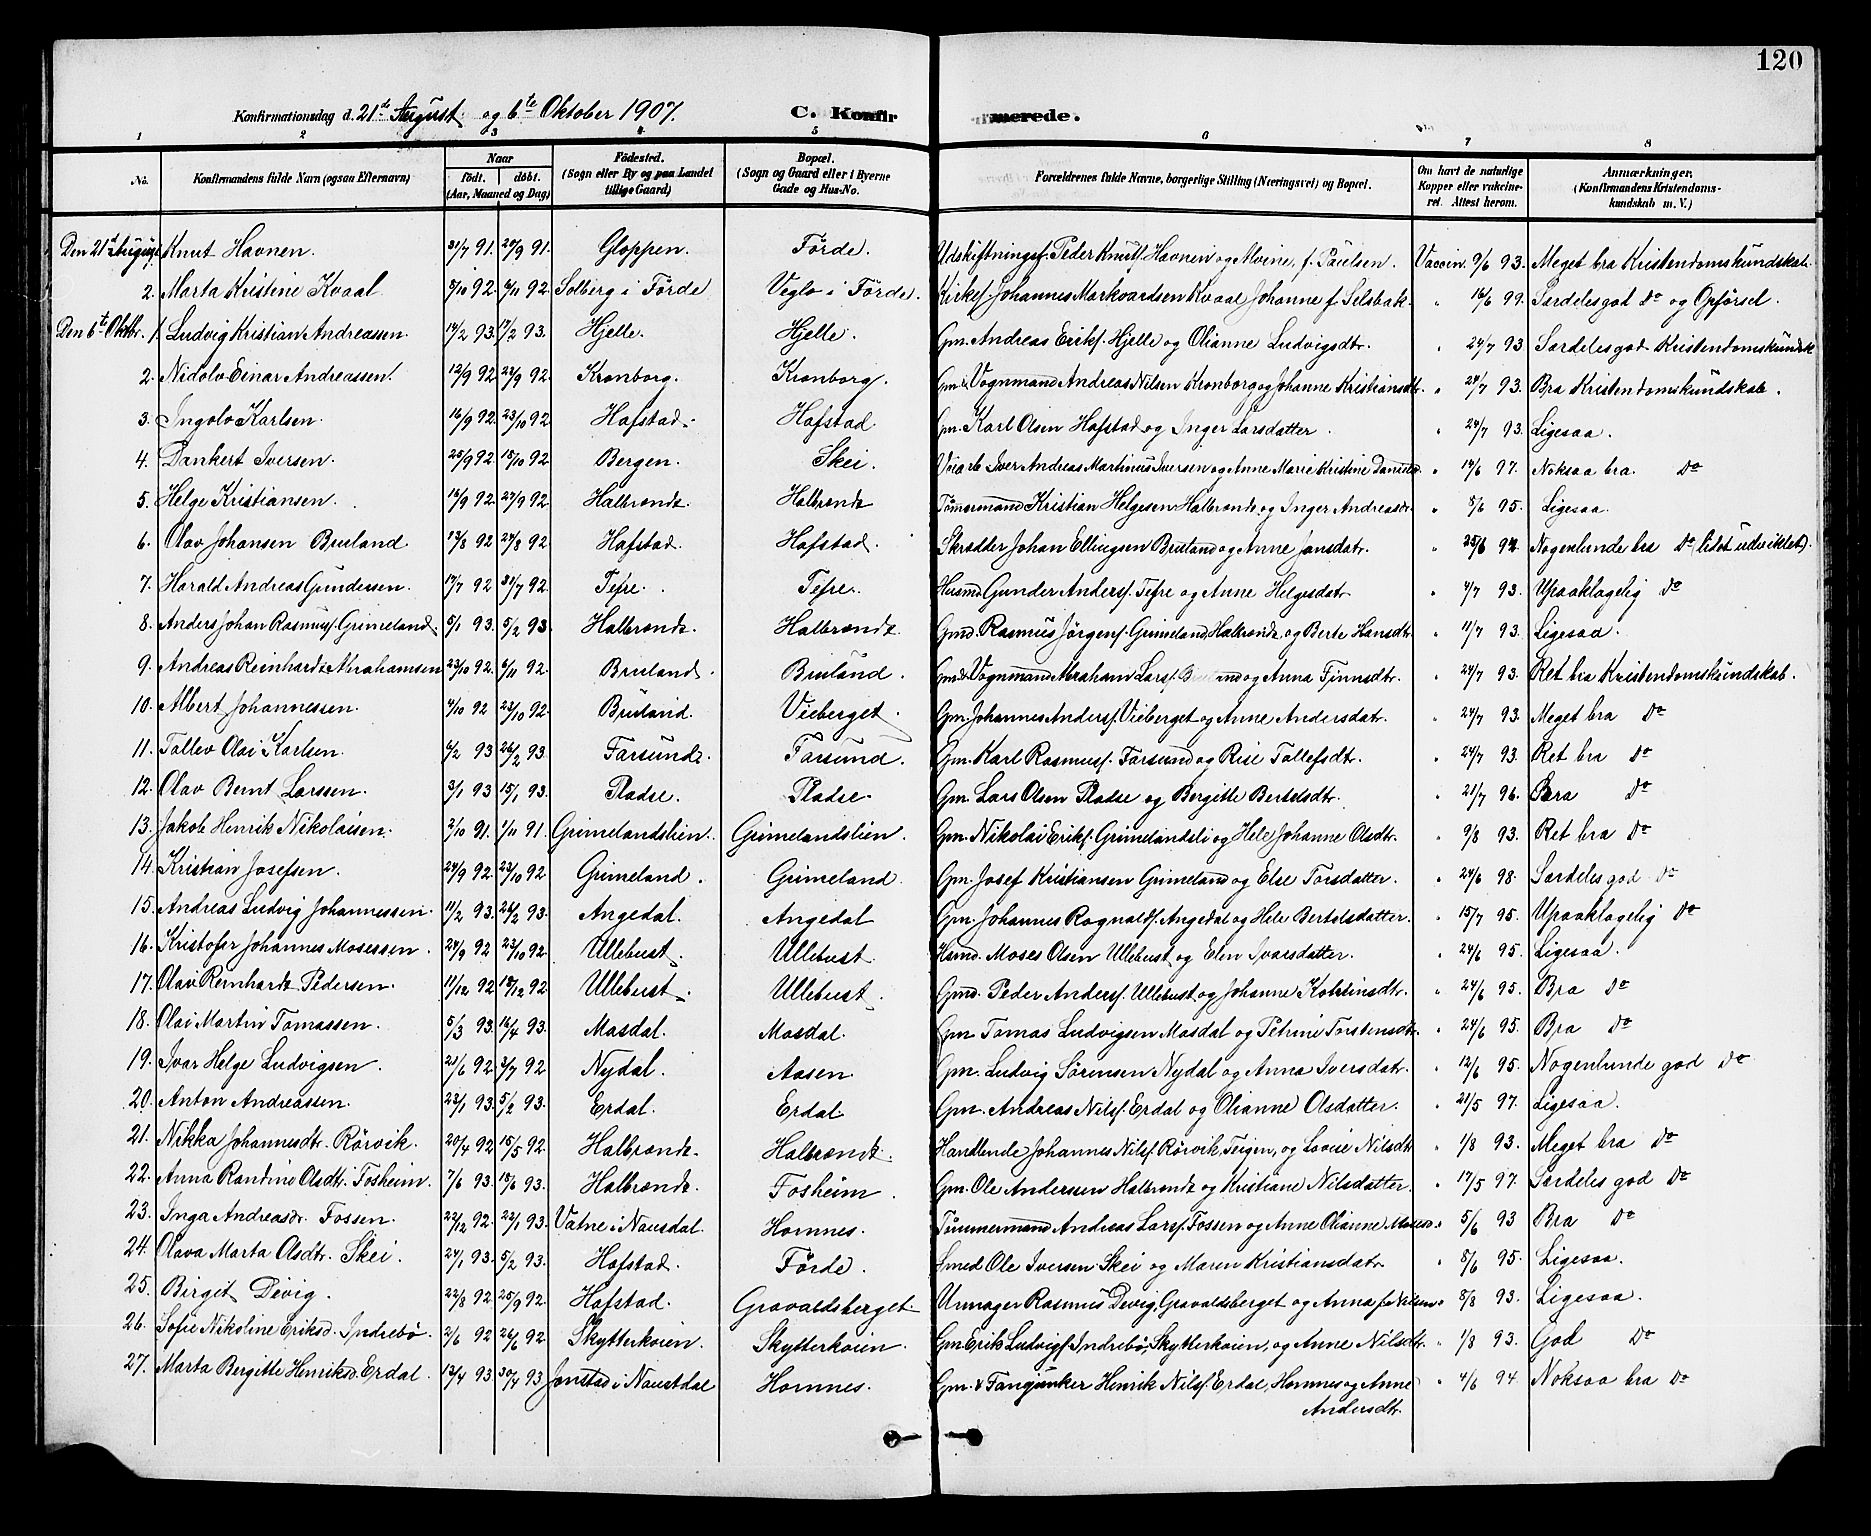 120
Konfirmationsdag d. 21de August og 6te Oktober 1907. C. Konfirmerede.
1 2 3 4 5 6 7 8
No. Konfirmandens fulde Navn (ogsaa Efternavn) Naar födt. döbt. (Aar, Maaned og Dag) Födested. (Sogn eller By og paa Landet tillige Gaard) Bopæl. (Sogn og Gaard eller i Byerne Gade og Hus-No. Forældrenes fulde Navne, borgerlige Stilling (Næringsvei) og Bopæl. Om havt de naturlige Kopper eller vakcineret. Attest herom. Anmærkninger. (Konfirmandens Kristendomskundskab m. V.)
Den 21de August 1. Knut Havnen. 31/7 91. 20/9 91. Gloppen. Förde. Udskiftningsf. Peder Knutf. Havnen og Alvine, f. Paulsen. Vaccin. 9/6 93. Meget bra Kristendomskundskab.
2. Marta Kristine Kvaal 7/10 92. 6/11 92. Solberg i Förde Veglo i Förde. Kirkef. Johannes Markvardsen Kvaal Johanne f. Selsbak. " 16/6 99. Særdeles god do og Opförsel.
Den 6te Oktbr. 1. Ludvig Kristian Andreassen. 14/2 93. 17/2 93. Hjelle. Hjelle. Gm. Andreas Erikf. Hjelle og Olianne Ludvigsdtr. " 24/7 93. Særdeles god Kristendomskundsk
2. Nidolv Einar Andreassen. 12/9 92. 23/9 92. Kronborg. Kronborg. Gm. & Vognmand Andreas Nilsen Kronborg og Johanne Kristiansdtr. " 24/7 93. Bra Kristendomskundskab.
3. Ingolv Karlsen. 16/9 92. 23/10 92 Hafstad. Hafstad Gm. Karl Olsen Hafstad og Inger Larsdatter. " 24/7 93. Ligesaa.
4. Dankert Iversen. 25/9 92. 15/10 92 Bergen. Skei. Iver Andreas Martinus Iversen og Anne Marie Kristine " 14/6 97. Noksaa bra. do
5. Helge Kristiansen. 16/9 92. 24/9 92. Halbrendt. Halbrendt Tömmermand Kristian Helgesen Halbrendt og Inger Andreasdr. " 8/6 95. Ligesaa.
6. Olav Johansen Bruland 13/8 92 24/8 92. Hafstad. Hafstad. Skrædder Johan Ellingsen Bruland og Anne Jansdatr. " 25/6 94. Nogenlunde bra do, lidet udviklet).
7. Harald Andreas Gundersen. 17/7 92 31/7 92. Tefre. Tefre. Husmd Gunder Andersf. Tefre og Anne Helgesdatr. " 4/7 93. Upaaklagelig do
8. Anders Johan Rasmusf. Grimeland. 5/1 93. 5/2 93. Halbrendt. Halbrendt. Gmd. Rasmus Jörgenf. Grimeland Halbrendt og Berte Hansdtr. " 11/7 93. Ligesaa.
9. Andreas Reinhardt Abrahamsen 23/10 92. 6/11 92. Bruland. Bruland. Gm & Vognmand Abraham Larsf. Bruland og Anna Finnsdtr. " 24/7 93. Ret bra Kristendomskundskab.
10. Albert Johannessen. 4/10 92 23/10 92. Bruland. Vieberget. Gm. Johannes Andersf. Vieberget og Anne Andersdatr. " 24/7 93. Meget bra do
11. Tollev Olai Karlsen. 6/2 93 26/2 93. Farsund. Farsund. Gm. Karl Rasmusf. Farsund og Rise Tollefsdtr. " 24/7 93. Ret bra do
12. Olav Bernt Larssen. 3/1 93 15/1 93. Pladse. Pladse. Gm. Lars Olsen Pladse og Bergitte Bertelsdtr. " 21/7 96. Bra do
13. Jakob Henrik Nikolaisen. 2/10 91. 1/11 91. Grimelandslien. Grimelandslien. Gm. Nikolai Erikf. Grimelandsli og Hele Johanne Olsdtr. " 9/8 93. Ret bra do
14. Kristian Josefsen. 24/9 92. 23/10 92 Grimeland. Grimeland. Gm. Josef Kristiansen Grimeland og Else Torsdatter. " 24/6 98. Særdeles god do
15. Andreas Ludvig Johannessen. 11/2 93. 26/2 93. Angedal. Angedal Gm. Johannes Rognaldf. Angedal og Hele Bertelsdatter. " 15/7 95. Upaaklagelig do
16. Kristofer Johannes Mosessen. 24/9 92 23/10 92. Ullebust. Ullebust. Hsmd. Moses Olsen Ullebust og Elen Ivarsdatter. " 24/6 95. Ligesaa.
17. Olav Reinhardt Pedersen. 11/12 92 18/12 92 Ullebust. Ullebust. Gmd. Peder Andersf. Ullebust og Johanne Kolbeinsdtr. " 24/6 95. Bra do
18. Olai Martin Tomassen. 5/3 93. 16/4 93. Masdal. Mosdal. Gm. Tomas Ludvigsen Masdal og Petrine Torstensdtr. " 24/6 95. Bra do
19. Ivar Helge Ludvigsen. 21/6 92 3/7 92 Nydal. Aasen Gm. Ludvig Sörensen Nydal og Anna Iversdatr. " 12/6 95. Nogenlunde god do
20. Anton Andreassen. 23/1 93. 5/2 93. Erdal. Erdal Gm. Andreas Nilsf. Erdal og Olianne Olsdatter. " 21/5 97. Ligesaa.
21. Nikka Johannesdtr. Rörvik. 20/4 92 15/5 92. Halbrendt. Halbrendt. Handlende Johannes Nilsf. Rörvik, Teigen, og Lovise Nilsdtr " 1/8 93. Meget bra do
22. Anna Randine Olsdtr. Fosheim. 7/6 93. 18/6 93. Halbrendt. Fosheim. Gm. Ole Anderssen Halbrendt og Kristiane Nilsdatter. " 17/5 97. Særdeles god do
23. Inga Andreasdr. Fossen. 22/12 92. 22/1 93. Vatne i Naustdal. Hornnes. Tümmermand Andreas Larsf. Fossen og Anne Olianne " 5/6 93 Bra do
24. Olava Marta Olsdtr. Skei. 24/1 93. 5/2 93. Hafstad. Förde. Smed Ole Iversen Skei og Maren Kristiansdatr. " 8/6 95. Ligesaa.
25. Birget Devig. 22/8 92. 25/9 92. Hafstad. Gravaldsberget. Urmager Rasmus Devig, Gravaldsberget og Anna f. Nilsen " 8/8 93. Ligesaa.
26. Sofie Nikoline Eriksd. Indrebö. 2/6 92 26/6 92 Skytterkoien Skytterkoien. Gm. Erik Ludvigf. Indrebö, Skytterkoien, og Anne Nilsdtr. " 1/8 93. God do
27. Marta Bergitte Henriksd. Erdal. 13/4 93. 30/4 93. Jonstad i Naustdal Hornnes. Gm. & Fangjunker Henrik Nilsf. Erdal, Hornnes og Anne " 4/6 94. Noksaa bra do
Andersdtr.